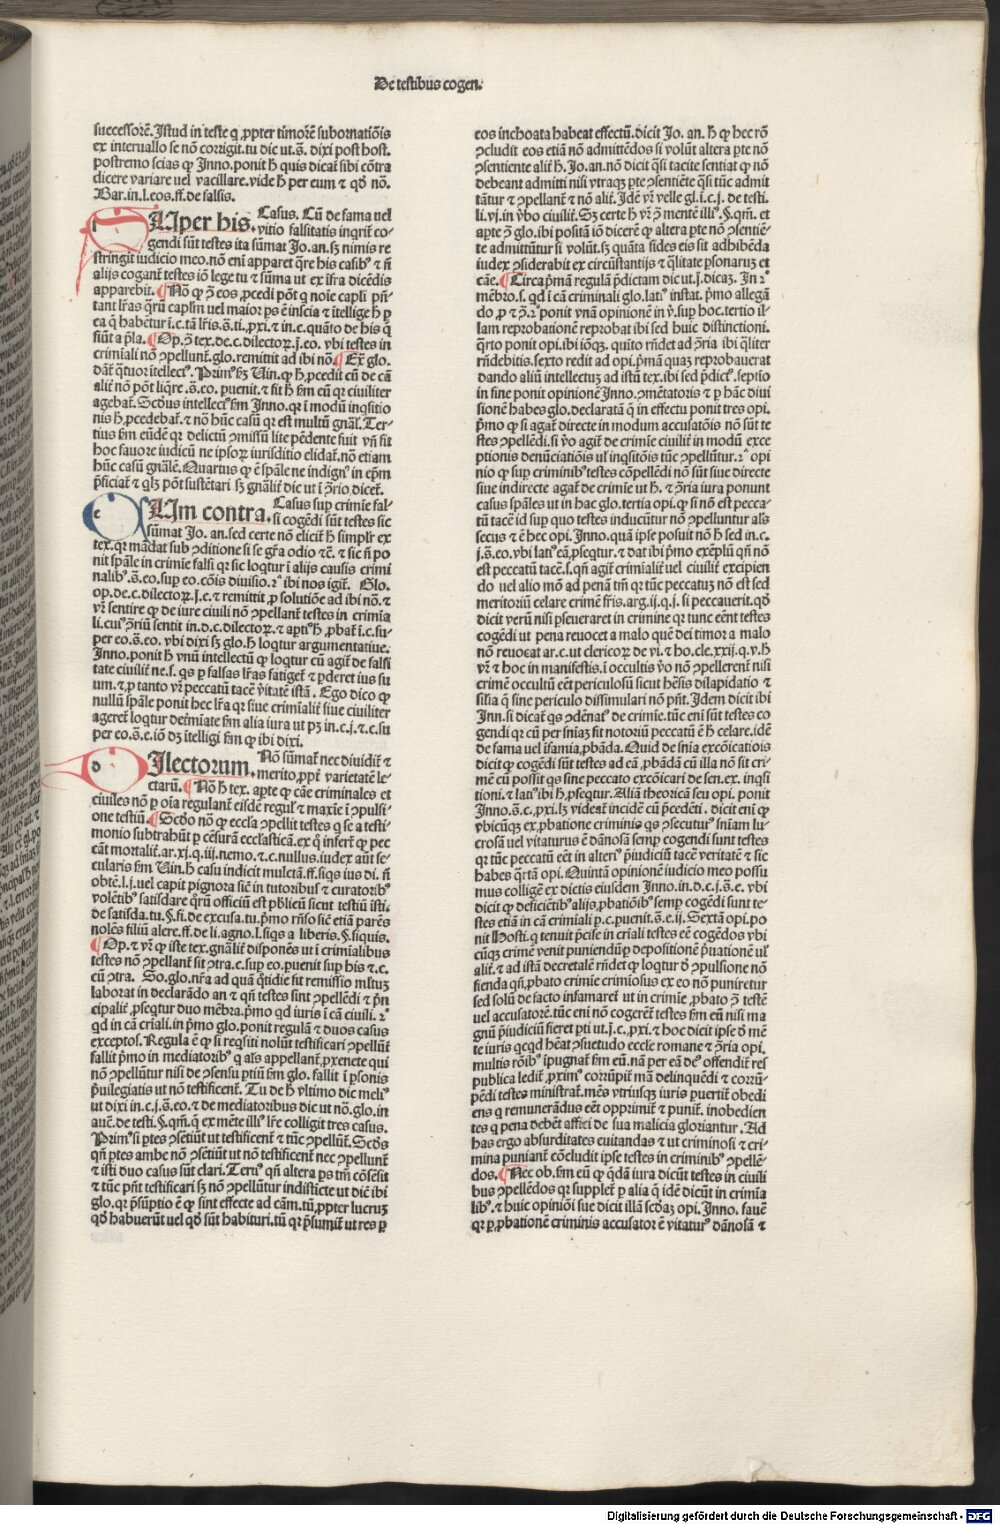 De testibus cogen.
successorē. Istud in teste q ꝓpter timorē subornatiōis
ex interuallo se nō corrigit. tu dic ut. s̄. dixi post host.
postremo scias ꝙ Inno. ponit h̄ quis dicat̄ sibi cōtra
dicere variare uel vacillare. vide h̄ per eum ⁊ qđ nō.
Bar. in. l. eos. ff. de falsis.
SUper his. Casus. Cū de fama uel
vitio falsitatis inqrit̄ co-
gendi sūt testes ita sūmat Jo. an. sꝫ nimis re
stringit iudicio meo. nō eni apparet q̄re his casibꝰ ⁊ n̄
alijs cogant̄ testes iō lege tu ⁊ sūma ut ex ifra dicēdis
apparebit. ¶ Nō ꝙ ꝯ̄ eos ꝓcedi pōt q noie capli pn̄-
tant lr̄as qrū caplm uel maior ps ē inscia ⁊ itellige h̄ p
ea q̄ habētur i. c. tā lr̄is. s̄. ti. ꝓxi. ⁊ in. c. quāto de his q̄
fiūt a p̄la. ¶ Op. ꝯ̄ tex. de. c. dilectoꝝ. j. eo. vbi testes in
crimīali nō ꝯpellunt̄. glo. remittit ad ibi nō. ¶ Ex̄ glo.
dat̄ q̄tuor itellecꝰ. Primꝰ sꝫ Uin. ꝙ h̄ ꝓcedit cū de cā
alit̄ nō pōt liqre. s̄. eo. puenit. ⁊ sit h̄ sm̄ eū qꝛ ciuiliter
agebat̄. Scdus intellecꝰ sm̄ Inno. qꝛ i modū inqsitio
nis h̄ ꝓcedebat̄. ⁊ nō hūc casū qꝛ est multū gnāl. Ter-
tius sm̄ eūdē qꝛ delictū ꝯmissū lite pēdente fuit vn̄ fit
hoc fauore iudicū ne ipsoꝝ iurisditio elidat̄. nō etiam
hūc casū gnālē. Quartus ꝙ ē spāle ne indignꝰ in epm̄
p̄ficiat̄ ⁊ qlꝫ pōt sustētari sꝫ gnālit̄ dic ut i ꝯ̄rio dicet̄.
CUm contra. Casus sup crimie fal-
si cogēdi sūt testes sic
sūmat Jo. an. sed certe nō elicit̄ h̄ simplr̄ ex
tex. qꝛ mādat sub ꝯditione si se gr̄a odio ⁊c̄. ⁊ sic n̄ po
nit spāle in crimie falsi qꝛ sic loqtur i alijs causis crimi
nalibꝰ. s̄. eo. sup eo. cōis diuisio. 2ꝰ ibi nos igit̄. Glo.
op. de. c. dilectoꝝ. j. e. ⁊ remittit ꝓ solutiōe ad ibi nō. ⁊
vr̄ sentire ꝙ de iure ciuili nō ꝯpellant̄ testes in crimia
li. cuiꝰ ꝯ̄riū sentit in. d. c. dilectoꝝ. ⁊ aptiꝰ h̄ ꝓbat̄ i. c. su-
per eo. s̄. eo. vbi dixi sꝫ glo. h̄ loqtur argumentatiue.
Inno. ponit h̄ vnū intellectū ꝙ loqtur cū agit̄ de falsi
tate ciuilit̄ ne. s. qs p falsas lr̄as fatiget̄ ⁊ ꝑderet ius su
um. ⁊ ꝑ tanto vr̄ peccatū tacē v̄itatē istā. Ego dico ꝙ
nullū spāle ponit hec lr̄a qꝛ siue crimīalit̄ siue ciuiliter
ageret̄ loqtur det̄miate sm̄ alia iura ut pꝫ in. c. j. ⁊. c. su
per eo. s̄. c. iō dꝫ itelligi sm̄ ꝙ ibi dixi.
DIlectorum. Nō sūmat̄ nec diuidit̄ ⁊
merito. ꝓpt̄ varietatē le-
ctarū. ¶ Nō h̄ tex. apte ꝙ cāe criminales et
ciuiles nō ꝑ oīa regulant̄ eisdē regul̄ ⁊ maxie i ꝯpulsi-
one testiū. ¶ Scdo nō ꝙ eccla ꝯpellit testes q se a testi-
monio subtrahūt ꝑ cēsurā ecclasticā. ex q̄ infert̄ ꝙ pec
cāt mortalit̄. ar. xj. q. iij. nemo. ⁊. c. nullus. iudex aūt se-
cularis sm̄ Uin. h̄ casu indicit multctā. ff. siqs ius di. n̄
obtē. l. j. uel capit pignora sic̄ in tutoribꝰ ⁊ curatoribꝰ
volētibꝰ satisdare q̄rū officiū est pb̄licū sicut testiū isti.
de satisda. tu. §. fi. de excusa. tu. p̄mo rn̄so sic̄ etiā parēs
nolēs filiū alere. ff. de li. agno. l. siqs a liberis. §. siquis.
¶ Op. ⁊ vr̄ ꝙ iste tex. gnālit̄ disponēs ut i crimialibus
testes nō ꝯpellant̄ sit ꝯtra. c. sup eo. puenit sup his ⁊. c.
cū ꝯtra. So. glo. nr̄a ad quā q̄tidie fit remissio mltuꝫ
laborat in declarādo an ⁊ qn̄ testes sint ꝯpellēdi ⁊ p̄n
cipalit̄ ꝓseqtur duo mēbra. p̄mo qd iuris i cā ciuili. 2ꝰ
qd in cā crīali. in p̄mo glo. ponit regulā ⁊ duos casus
exceptos. Regula ē ꝙ si reqsiti nolūt testificari ꝯpellūt̄
fallit p̄mo in mediatoribꝰ q als appellant̄ ꝓxenete qui
nō ꝯpellūtur nisi de ꝯsensu ptiū sm̄ glo. fallit i psonis
p̄uilegiatis ut nō testificent̄. Tu de h̄ vltimo dic meliꝰ
ut dixi in. c. j. s̄. eo. ⁊ de mediatoribus dic ut nō. glo. in
auc̄. de testi. §. qm̄. q̄ ex mēte illiꝰ lr̄e colligit tres casus.
Primꝰ si ptes ꝯsētiūt ut testificent̄ ⁊ tūc ꝯpellūt̄. Scđs
qn̄ ptes ambe nō ꝯsētiūt ut nō testificent̄ nec ꝯpellunt̄
⁊ isti duo casus sūt clari. Tertiꝰ qn̄ altera ps tm̄ cōsēsit
⁊ tūc pn̄t testificari sꝫ nō ꝯpellūtur indisticte ut dic̄ ibi
glo. qꝛ p̄sūptio ē ꝙ sint effecte ad cām. tū. ꝓpter lucruꝫ
qđ habuerūt uel qđ sūt habituri. tū qꝛ p̄sumit̄ ut res ꝑ
eos inchoata habeat effectū. dicit Jo. an. h̄ ꝙ hec rō
ꝯcludit eos etiā nō admittēdos si volūt altera pte nō
ꝯsentiente alit̄ h̄. Jo. an. nō dicit qsi tacite sentiat ꝙ nō
debeant admitti nisi vtraqꝫ pte ꝯsētiēte qsi tūc admit
tātur ⁊ ꝯpellant̄ ⁊ nō alit̄. Idē vr̄ velle gl. i. c. j. de testi.
li. vj. in v̄bo ciuilit̄. Sꝫ certe h̄ vr̄ ꝯ̄ mentē illiꝰ §. qm̄. et
apte ꝯ̄ glo. ibi positā iō dicerē ꝙ altera pte nō ꝯsentiē-
te admittūtur si volūt. sꝫ quāta fides eis sit adhibēda
iudex ꝯsiderabit ex circūstantijs ⁊ q̄litate psonaruꝫ et
cāe. ¶ Circa p̄mā regulā p̄dictam dic ut. j. dicaꝫ. In 2ꝰ
mēbro. s. qd i cā criminali glo. latiꝰ instat. p̄mo allegā
do. ꝓ ⁊ ꝯ̄. 2ꝰ ponit vnā opinionē in v̄. sup hoc. tertio il-
lam reprobationē reprobat ibi sed huic distinctioni.
q̄rto ponit opi. ibi ioqꝫ. quito rn̄det ad ꝯ̄ria ibi q̄liter
rn̄debitis. sexto redit ad opi. p̄mā quaꝫ reprobauerat
dando aliū intellectuꝫ ad istū tex. ibi sed p̄dicꝰ. septio
in fine ponit opinionē Inno. ꝯmētatoris ⁊ ꝑ hāc diui
sionē habes glo. declaratā q̄ in effectu ponit tres opi.
p̄mo ꝙ si agat̄ directe in modum accusatōis nō sūt te
stes ꝯpellēdi. si v̄o agit̄ de crimie ciuilit̄ in modū exce
ptionis denūciatiōis ul̄ inqsitōis tūc ꝯpellūtur. 2ꝰ opi
nio ꝙ sup criminibꝰ testes cōpellēdi nō sūt siue directe
siue indirecte agat̄ de crimie ut h̄. ⁊ ꝯ̄ria iura ponunt
casus spāles ut in hac glo. tertia opi. ꝙ si nō est pecca-
tū tacē id sup quo testes inducūtur nō ꝯpelluntur als
secus ⁊ ē hec opi. Inno. quā ipse posuit nō h̄ sed in. c.
j. s̄. eo. vbi latiꝰ eā. pseqtur. ⁊ dat ibi p̄mo exēplū qn̄ nō
est peccatū tacē. s. qn̄ agit̄ crimialit̄ uel ciuilit̄ excipien
do uel alio mō ad penā tm̄ qꝛ tūc peccatuꝫ nō est sed
meritoriū celare crimē fr̄is. arg. ij. q. j. si peccauerit. qđ
dicit verū nisi pseueraret in crimine qꝛ tunc eēnt testes
cogēdi ut pena reuocet a malo quē dei timor a malo
nō reuocat ar. c. ut clericoꝝ de vi. ⁊ ho. cle. xxij. q. v. h̄
vr̄ ⁊ hoc in manifestis. i occultis v̄o nō ꝯpellerent̄ nisi
crimē occultū eēt periculosū sicut hēsis dilapidatio ⁊
sīlia q̄ sine periculo dissimulari nō pn̄t. Idem dicit ibi
Inn. si dicat̄ qs ꝯdēnatꝰ de crimie. tūc eni sūt testes co
gendi qꝛ cū per sniaꝫ sit notoriū peccatū ē h̄ celare. idē
de fama uel ifamia. ꝓbāda. Quid de snia excōicatiois
dicit ꝙ cogēdi sūt testes ad eā ꝓbādā cū illa nō sit cri-
mē cū possit qs sine peccato excōicari de sen. ex. inqsi
tioni. ⁊ latiꝰ ibi h̄. ꝓseqtur. Aliā theoricā seu opi. ponit
Inno. s̄. c. ꝓxi. lꝫ videat̄ incidē cū p̄cedēti. dicit eni ꝙ
vbicūqꝫ ex ꝓbatione criminis qs ꝯsecuturꝰ sniam lu-
crosā uel vitaturus ē dānosā semp cogendi sunt testes
qꝛ tūc peccatū eēt in alteriꝰ p̄iudiciū tacē veritatē ⁊ sic
habes q̄rtā opi. Quintā opinionē iudicio meo possu
mus colligē ex dictis eiusdem Inno. in. d. c. j. s̄. e. vbi
dicit ꝙ deficiētibꝰ alijs. ꝓbatiōibꝰ semp cogēdi sunt te-
stes etiā in cā crimiali p. c. puenit. s̄. e. ij. Sextā opi. po
nit Hosti. q tenuit p̄cise in crīali testes eē cogēdos vbi
cūqꝫ crimē venit puniendū ꝓ depositionē p̄uationē ul̄
alit̄. ⁊ ad istā decretalē rn̄det ꝙ loqtur đ ꝯpulsione nō
fienda qn̄. ꝓbato crimie crimiosus ex eo nō puniretur
sed solū de facto infamaret̄ ut in crimie. ꝓbato ꝯ̄ testē
uel accusatorē. tūc eni nō cogerēt̄ testes sm̄ eū nisi ma
gnū p̄iudiciū fieret pti ut. j. c. ꝓxi. ⁊ hoc dicit ipse đ mē
te iuris qcqd hēat ꝯsuetudo eccle romane ⁊ ꝯ̄ria opi.
multis rōibꝰ ipugnat̄ sm̄ eū. nā per eā deꝰ offendit̄ res
publica ledit̄. ꝓximꝰ corrūpit̄ mā delinquēdi ⁊ corrū-
pēdi testes ministrat̄. mēs vtriusqꝫ iuris puertit̄ obedi
ens q remunerādus eēt opprimit̄ ⁊ punit̄. inobedien
tes q pena debēt affici de sua malicia gloriantur. Ad
has ergo absurditates euitandas ⁊ ut criminosi ⁊ cri-
mina puniant̄ cōcludit ipse testes in criminibꝰ ꝯpellē-
dos. ¶ Nec ob. sm̄ eū ꝙ q̄dā iura dicūt testes in ciuili
bus ꝯpellēdos qꝛ supplet̄ ꝑ alia q̄ idē dicūt in crimia
libꝰ. ⁊ huic opiniōi sue dicit illā scđaꝫ opi. Inno. fauē
qꝛ ꝑ ꝓbationē criminis accusator ē vitaturꝰ dānosā ⁊
Digitalisierung gefördert durch die Deutsche Forschungsgemeinschaft - DFG